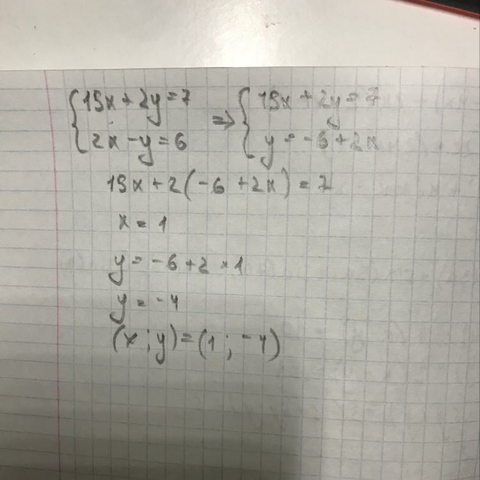 {15x + 2y = 7 => {15x + 2y = 7
{2x - y = 6 {y = -6 + 2x
15x + 2(-6 + 2x) = 7
x = 1
y = -6 + 2 × 1
y = -4
(x ; y) = (1 ; -4)